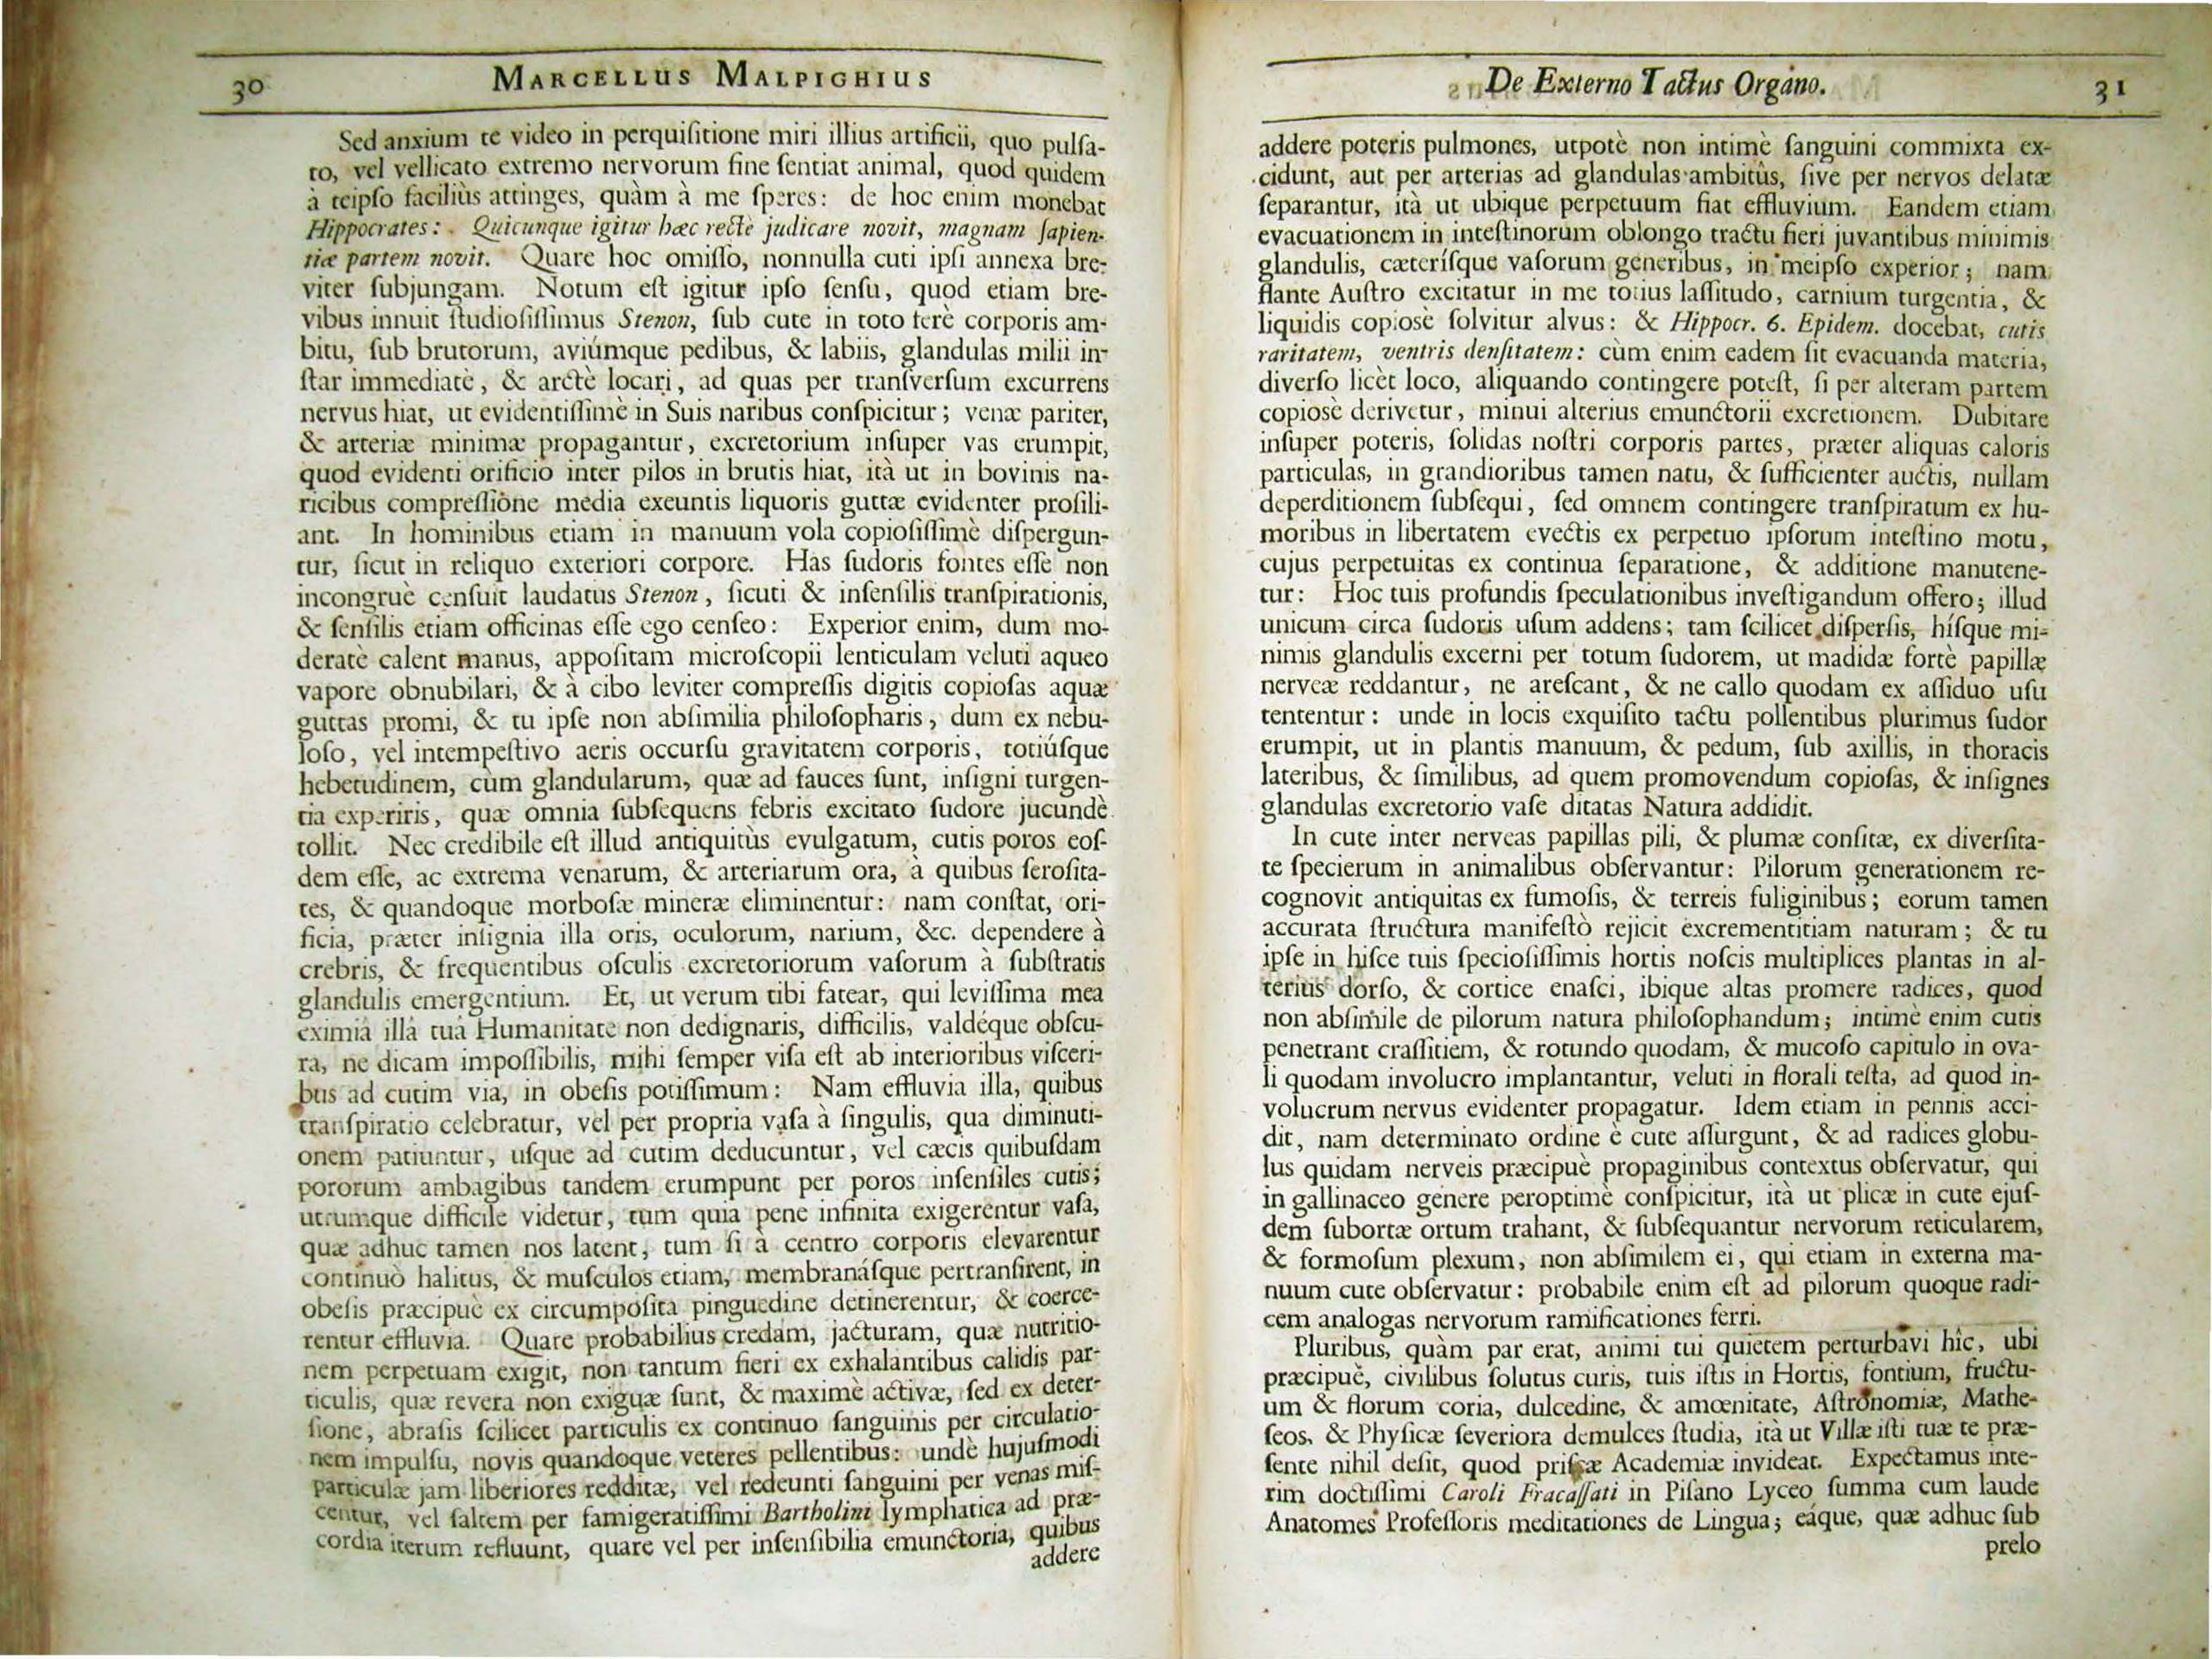 30
MARCELLUS MALPIGHIUS
Sed anxium te video in perquiſitione miri illius artificii, quo pulſa-
to, vel vellicato extremo nervorum fine ſentiat animal, quod quidem
à teipſo faciliùs attinges, quàm à me ſperes: de hoc enim monebat
Hippocrates: Quicunque igitur hæc rectè judicare novit, magnam ſapien-
tiæ partem novit. Quare hoc omiſſo, nonnulla cuti ipſi annexa bre-
viter ſubjungam. Notum eſt igitur ipſo ſenſu, quod etiam bre-
vibus innuit ſtudioſiſſimus Stenon, ſub cute in toto ferè corporis am-
bitu, ſub brutorum, aviúmque pedibus, & labiis, glandulas milii in-
ſtar immediatè, & arctè locari, ad quas per tranſverſum excurrens
nervus hiat, ut evidentiſſimè in Suis naribus conſpicitur; venæ pariter,
& arteriæ minimæ propagantur, excretorium inſuper vas erumpit,
quod evidenti orificio inter pilos in brutis hiat, ità ut in bovinis na-
ricibus compreſſione media exeuntis liquoris guttæ evidenter proſili-
ant. In hominibus etiam in manuum vola copioſiſſimè diſpergun-
tur, ſicut in reliquo exteriori corpore. Has ſudoris fontes eſſe non
incongruè cenſuit laudatus Stenon, ſicuti & inſenſilis tranſpirationis,
& ſenſilis etiam officinas eſſe ego cenſeo: Experior enim, dum mo-
deratè calent manus, appoſitam microſcopii lenticulam veluti aqueo
vapore obnubilari, & à cibo leviter compreſſis digitis copioſas aquæ
guttas promi, & tu ipſe non abſimilia philoſopharis, dum ex nebu-
loſo, vel intempeſtivo aeris occurſu gravitatem corporis, totiúſque
hebetudinem, cùm glandularum, quæ ad fauces ſunt, inſigni turgen-
tia experiris, quæ omnia ſubſequens febris excitato ſudore jucundè
tollit. Nec credibile eſt illud antiquitùs evulgatum, cutis poros eoſ-
dem eſſe, ac extrema venarum, & arteriarum ora, à quibus ſeroſita-
tes, & quandoque morboſæ mineræ eliminentur: nam conſtat, ori-
ficia, præter inſignia illa oris, oculorum, narium, &c. dependere à
crebris, & frequentibus oſculis excretoriorum vaſorum à ſubſtratis
glandulis emergentium. Et, ut verum tibi fatear, qui leviſſima mea
eximiâ illâ tuâ Humanitate non dedignaris, difficilis, valdéque obſcu-
ra, ne dicam impoſſibilis, mihi ſemper viſa eſt ab interioribus viſceri-
bus ad cutim via, in obeſis potiſſimum: Nam effluvia illa, quibus
tranſpiratio celebratur, vel per propria vaſa à ſingulis, qua diminuti-
onem patiuntur, uſque ad cutim deducuntur, vel cæcis quibuſdam
pororum ambagibus tandem erumpunt per poros inſenſiles cutis;
utrumque difficile videtur, tum quia pene infinita exigerentur vaſa,
quæ adhuc tamen nos latent, tum ſi à centro corporis elevarentur
continuò halitus, & muſculos etiam, membranáſque pertranſirent, in
obeſis præcipuè ex circumpoſita pinguedine detinerentur, & coerce-
rentur effluvia. Quare probabilius credam, jacturam, quæ nutritio-
nem perpetuam exigit, non tantum fieri ex exhalantibus calidis par-
ticulis, quæ revera non exiguæ ſunt, & maximè activæ, ſed ex deter-
ſione, abraſis ſcilicet particulis ex continuo ſanguinis per circulatio-
nem impulſu, novis quandoque veteres pellentibus: undè hujuſmodi
particulæ jam liberiores redditæ, vel redeunti ſanguini per venas miſ-
centur, vel ſaltem per famigeratiſſimi Bartholini lymphatica ad præ-
cordia iterum refluunt, quare vel per inſenſibilia emunctoria, quibus
addere
De Externo Tactus Organo.
31
addere poteris pulmones, utpotè non intimè ſanguini commixta ex-
cidunt, aut per arterias ad glandulas ambitûs, ſive per nervos delatæ
ſeparantur, ità ut ubique perpetuum fiat effluvium. Eandem etiam
evacuationem in inteſtinorum oblongo tractu fieri juvantibus minimis
glandulis, cæteríſque vaſorum generibus, in meipſo experior; nam
flante Auſtro excitatur in me totius laſſitudo, carnium turgentia, &
liquidis copiosè ſolvitur alvus: & Hippocr. 6. Epidem. docebat, cutis
raritatem, ventris denſitatem: cùm enim eadem ſit evacuanda materia,
diverſo licèt loco, aliquando contingere poteſt, ſi per alteram partem
copiosè derivetur, minui alterius emunctorii excretionem. Dubitare
inſuper poteris, ſolidas noſtri corporis partes, præter aliquas caloris
particulas, in grandioribus tamen natu, & ſufficienter auctis, nullam
deperditionem ſubſequi, ſed omnem contingere tranſpiratum ex hu-
moribus in libertatem evectis ex perpetuo ipſorum inteſtino motu,
cujus perpetuitas ex continua ſeparatione, & additione manutene-
tur: Hoc tuis profundis ſpeculationibus inveſtigandum offero; illud
unicum circa ſudoris uſum addens; tam ſcilicet diſperſis, híſque mi-
nimis glandulis excerni per totum ſudorem, ut madidæ fortè papillæ
nerveæ reddantur, ne areſcant, & ne callo quodam ex aſſiduo uſu
tententur: unde in locis exquiſito tactu pollentibus plurimus ſudor
erumpit, ut in plantis manuum, & pedum, ſub axillis, in thoracis
lateribus, & ſimilibus, ad quem promovendum copioſas, & inſignes
glandulas excretorio vaſe ditatas Natura addidit.
In cute inter nerveas papillas pili, & plumæ conſitæ, ex diverſita-
te ſpecierum in animalibus obſervantur: Pilorum generationem re-
cognovit antiquitas ex fumoſis, & terreis fuliginibus; eorum tamen
accurata ſtructura manifeſtò rejicit excrementitiam naturam; & tu
ipſe in hiſce tuis ſpecioſiſſimis hortis noſcis multiplices plantas in al-
terius dorſo, & cortice enaſci, ibique altas promere radices, quod
non abſimile de pilorum natura philoſophandum; intimè enim cutis
penetrant craſſitiem, & rotundo quodam, & mucoſo capitulo in ova-
li quodam involucro implantantur, veluti in florali teſta, ad quod in-
volucrum nervus evidenter propagatur. Idem etiam in pennis acci-
dit, nam determinato ordine è cute aſſurgunt, & ad radices globu-
lus quidam nerveis præcipuè propaginibus contextus obſervatur, qui
in gallinaceo genere peroptimè conſpicitur, ità ut plicæ in cute ejuſ-
dem ſubortæ ortum trahant, & ſubſequantur nervorum reticularem,
& formoſum plexum, non abſimilem ei, qui etiam in externa ma-
nuum cute obſervatur: probabile enim eſt ad pilorum quoque radi-
cem analogas nervorum ramificationes ferri.
Pluribus, quàm par erat, animi tui quietem perturbavi hîc, ubi
præcipuè, civilibus ſolutus curis, tuis iſtis in Hortis, fontium, fructu-
um & florum coria, dulcedine, & amœnitate, Aſtronomiæ, Mathe-
ſeos, & Phyſicæ ſeveriora demulces ſtudia, ità ut Villæ iſti tuæ te præ-
ſente nihil deſit, quod priſcæ Academiæ invideat. Expectamus inte-
rim doctiſſimi Caroli Fracaſſati in Piſano Lyceo ſumma cum laude
Anatomes Profeſſoris meditationes de Lingua; eáque, quæ adhuc ſub
prelo